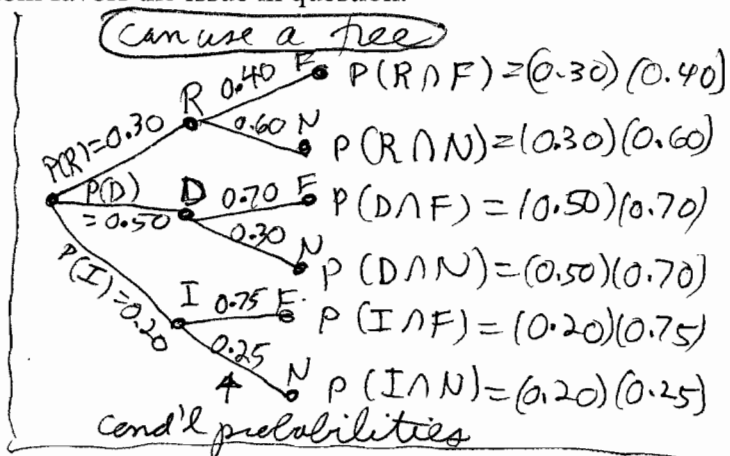 Can use a tree
P(R)=0.30 R 0.40 F P(R∩F)=(0.30)(0.40)
0.60 N P(R∩N)=(0.30)(0.60)
P(D)=0.50 D 0.70 F P(D∩F)=(0.50)(0.70)
0.30 N P(D∩N)=(0.50)(0.70)
P(I)=0.20 I 0.75 F P(I∩F)=(0.20)(0.75)
0.25 N P(I∩N)=(0.20)(0.25)
cond'l probabilities